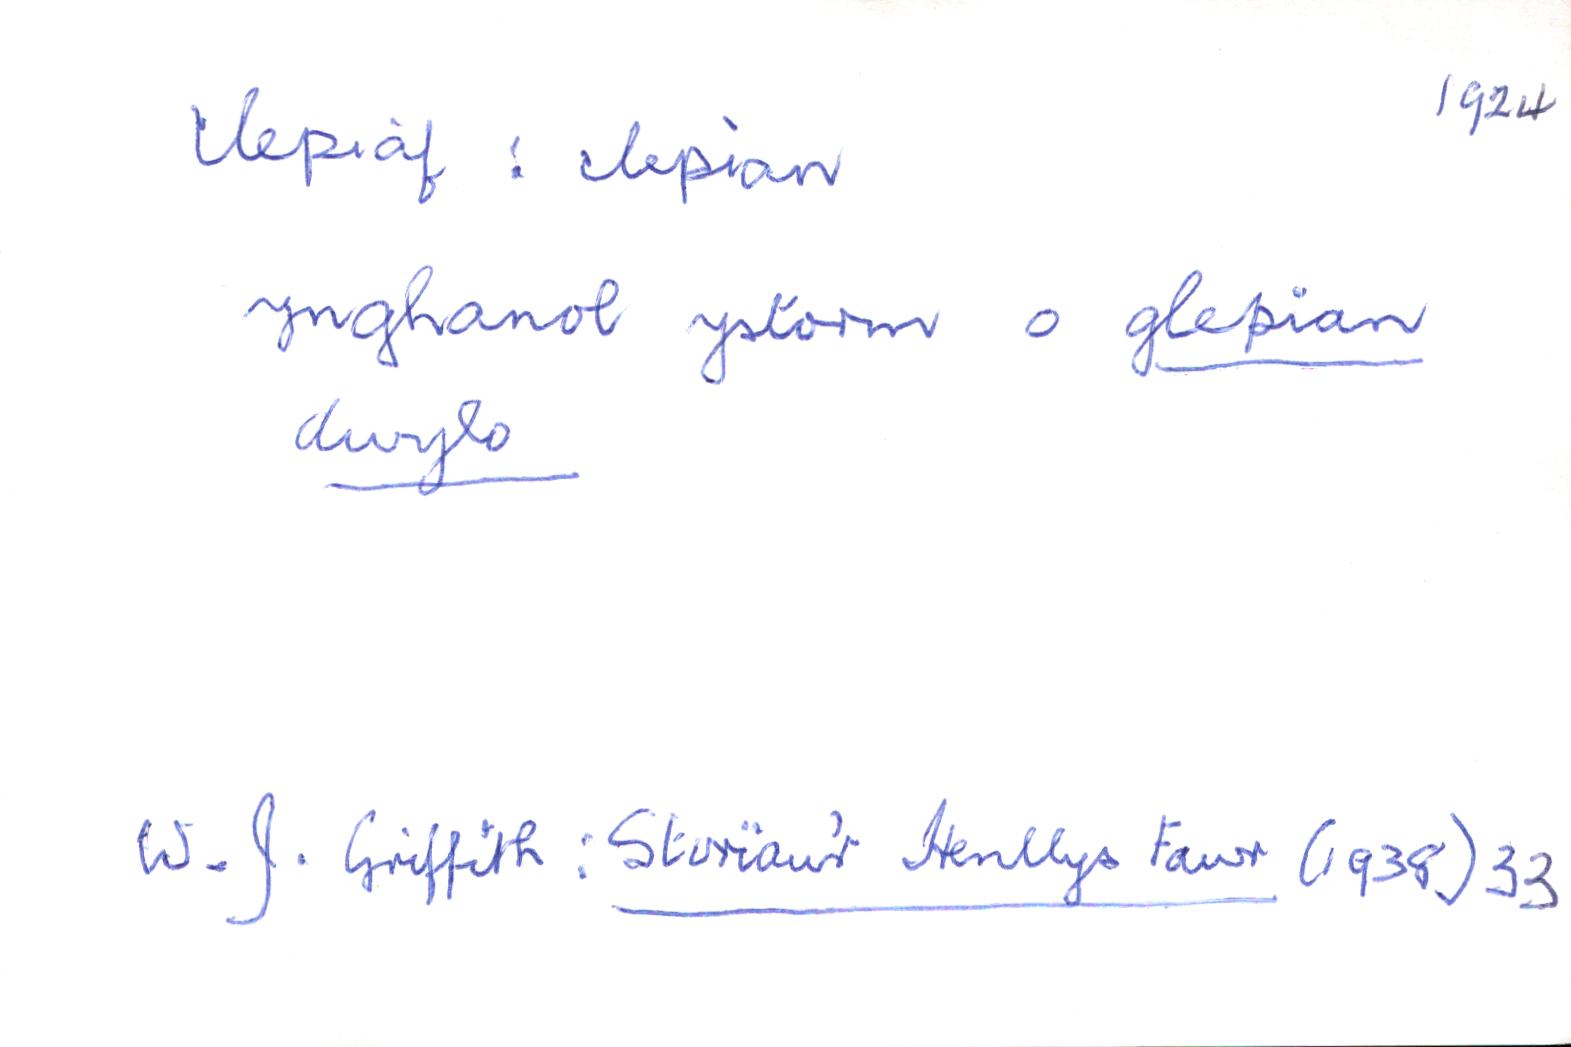 1924
clepiaf : clepian
ynghanol ystorm o glepian
dwylo
W. J. Griffith : Storïau'r Henllys Fawr (1938) 33